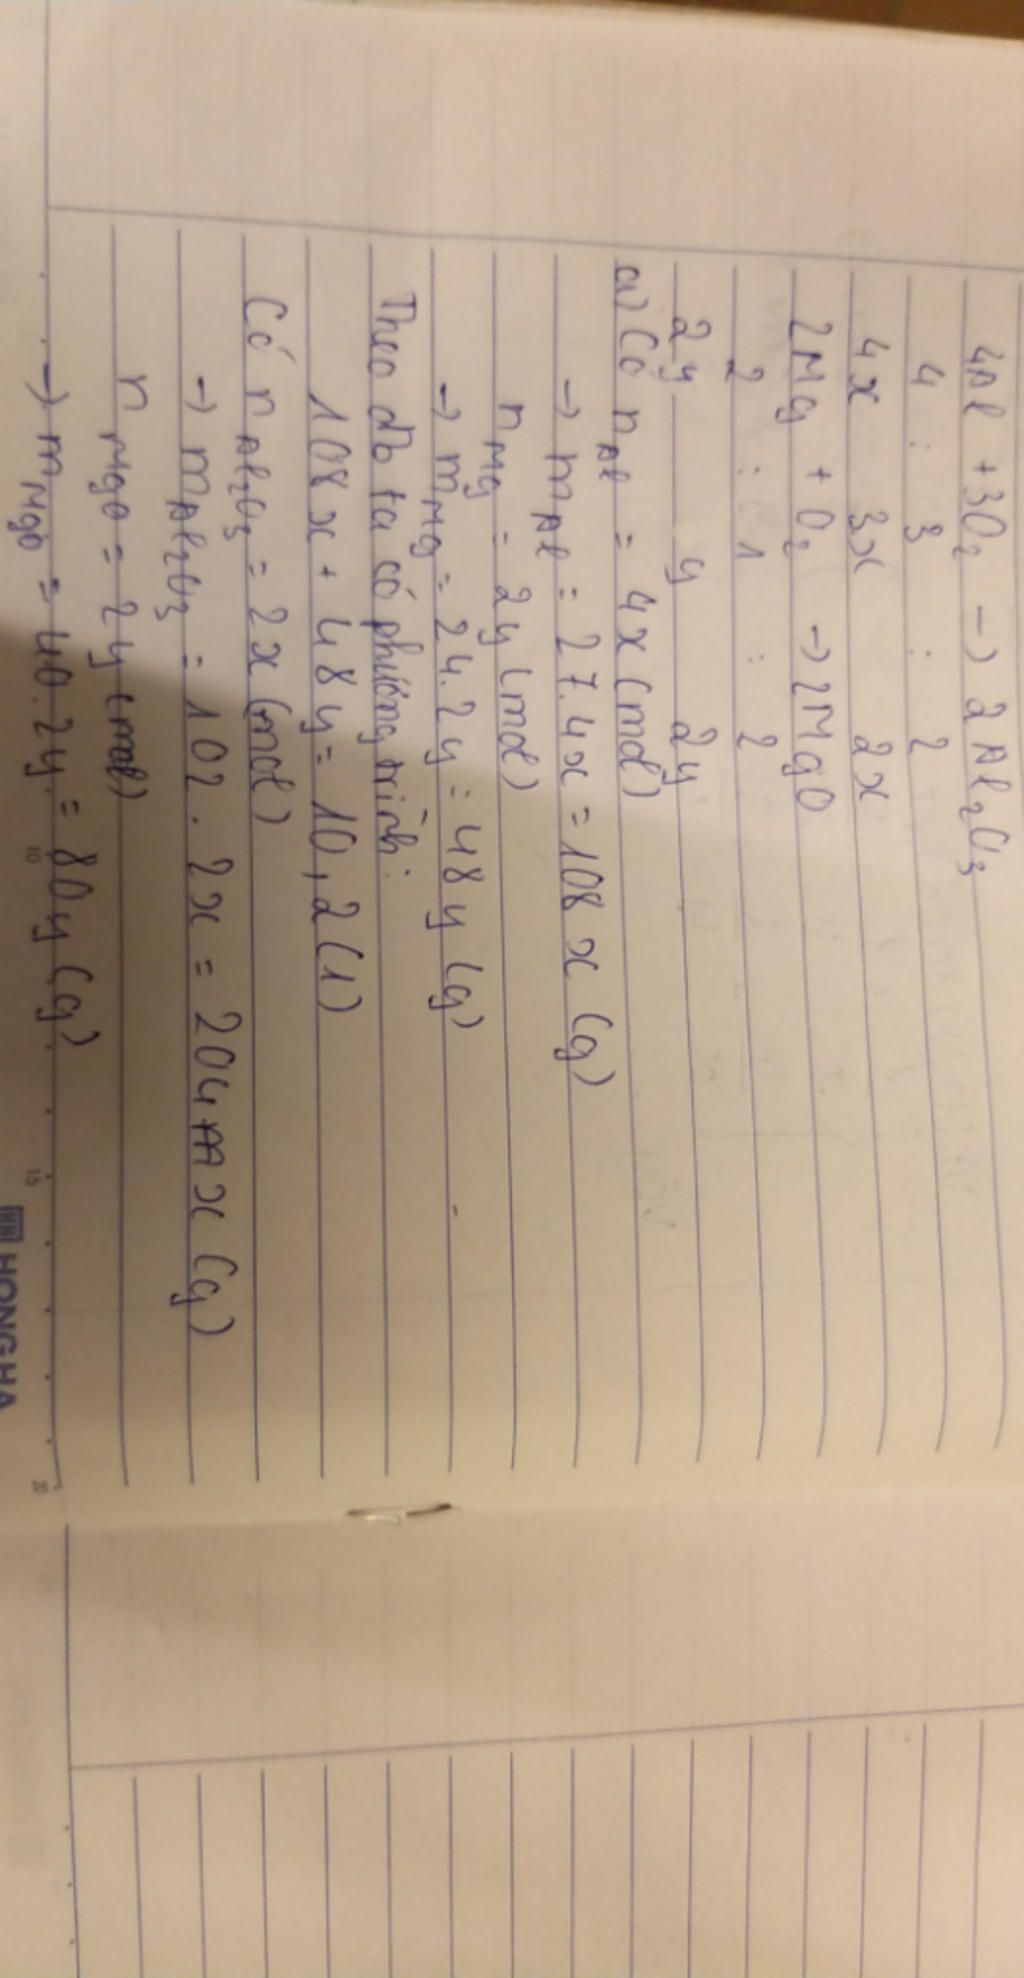 4Al + 3O2 → 2Al2O3
4 : 3 : 2
4x 3x 2x
2Mg + O2 → 2MgO
2 : 1 : 2
2y y 2y
a) Có nAl = 4x (mol)
→ mAl = 27.4x = 108x (g)
nMg = 2y (mol)
→ mMg = 24.2y = 48y (g)
Theo đb ta có phương trình:
108x + 48y = 10,2 (1)
Có nAl2O3 = 2x (mol)
→ mAl2O3 = 102 . 2x = 204 x (g)
nMgO = 2y (mol)
→ mMgO = 40.2y = 80y (g)
10 15 20
HONG HA